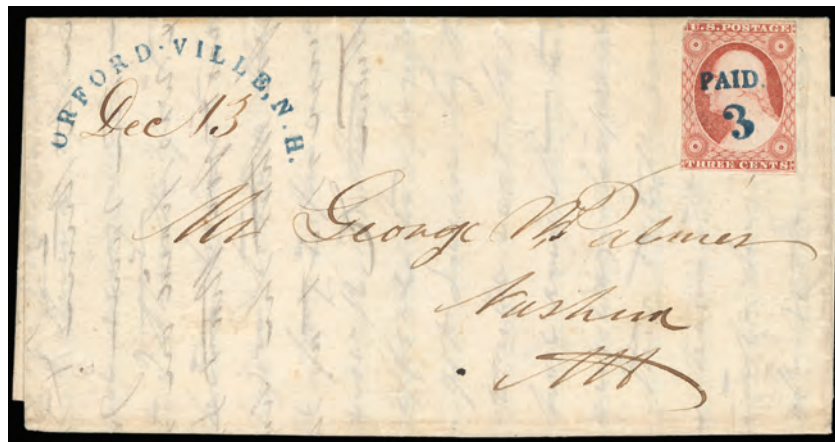 ORFORD-VILLE, N.H.
Dec 13
U.S. POSTAGE
PAID.
3
THREE CENTS
Mr George W Palmer
Nashua
NH